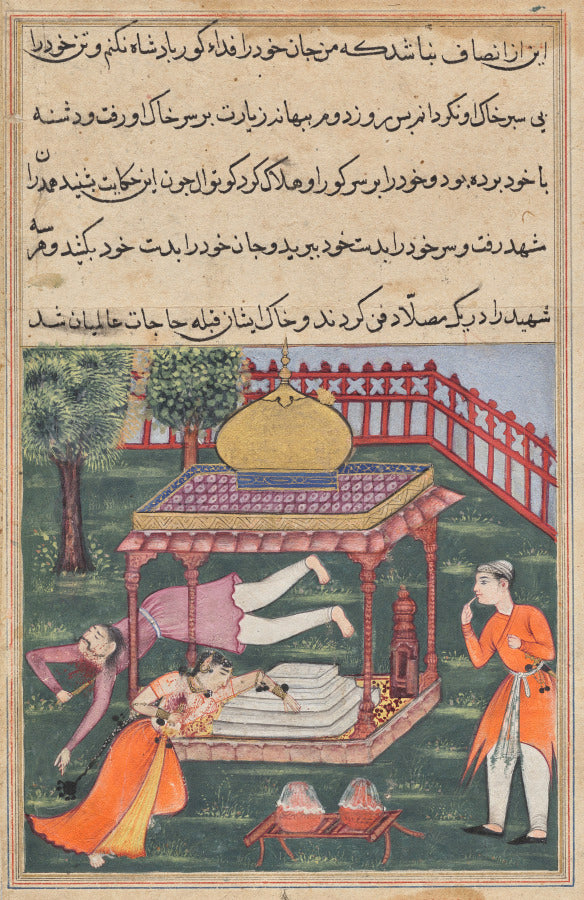 این از انصاف نباشد که من جان خود را فداء کور پادشاه نکنم و تن خود را
بی سبر خاک او نکردانم پس روز دوم ببهانه زیارت بر سر خاک او رفت و دشنه
با خود برده بود و خود را بر سر کور او هلاک کرد کوتوال جون این حکایت بشنید همدران
مشهد رفت و سر خود را بدست خود ببرید و جان خود را بدست خود بکشند و هر سه
شهید را در یک مصلا دفن کردند و خاک ایشان قبله حاجات عالمیان شد